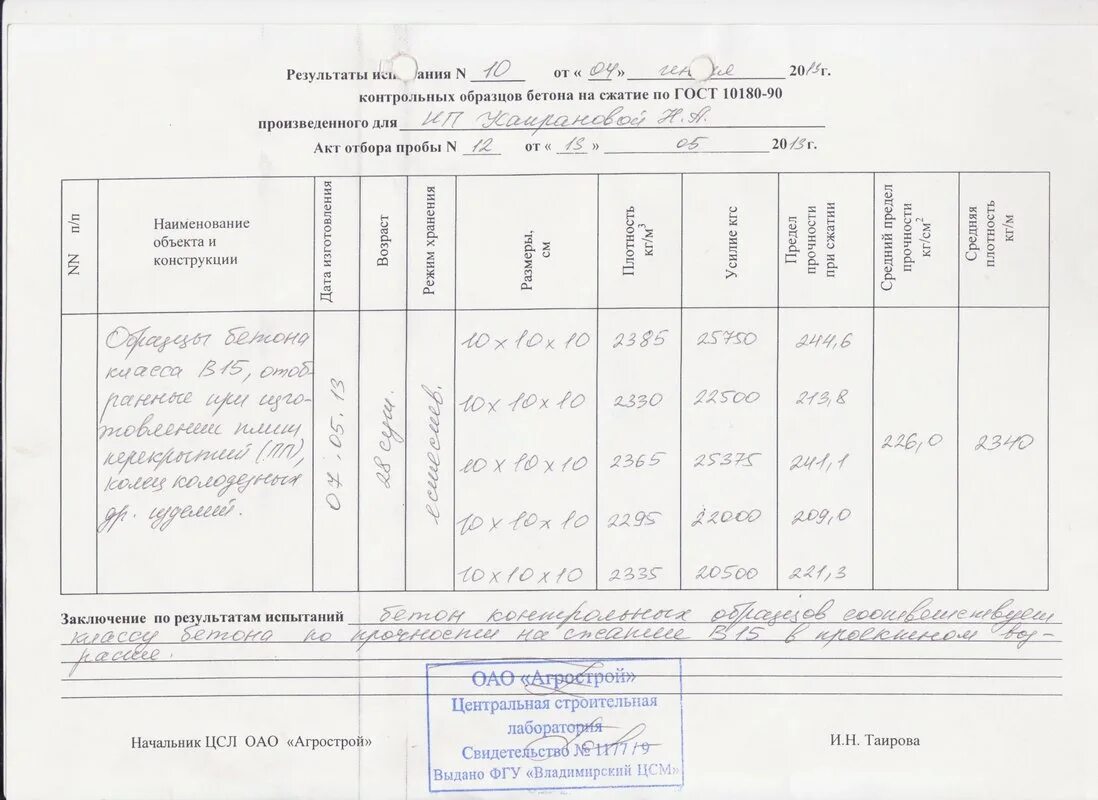 Результаты испытания N 10 от « 04 » июня 2013г.
контрольных образцов бетона на сжатие по ГОСТ 10180-90
произведенного для ИП Каирановой Н.А.
Акт отбора пробы N 12 от « 13 » 05 2013г.
NN п/п
Наименование объекта и конструкции
Дата изготовления
Возраст
Режим хранения
Размеры, см
Плотность кг/м³
Усилие кгс
Предел прочности при сжатии
Средний предел прочности кг/см²
Средняя плотность кг/м
Образцы бетона
класса В15, отоб-
ранные при изго-
товлении плит
перекрытий (ПП),
колец колодезных
др. изделий.
07.05.13
28 сут.
естествен.
10 х 10 х 10 2385 25750 244,6
10 х 10 х 10 2330 22500 213,8
10 х 10 х 10 2365 25375 241,1
10 х 10 х 10 2295 22000 209,0
10 х 10 х 10 2335 20500 221,3
226,0 2340
Заключение по результатам испытаний бетон контрольных образцов соответствует
классу бетона по прочности на сжатие В15 в проектном воз-
расте.
ОАО «Агрострой»
Центральная строительная
лаборатория
Свидетельство № 1177/9
Выдано ФГУ «Владимирский ЦСМ»
Начальник ЦСЛ ОАО «Агрострой»
И.Н. Таирова